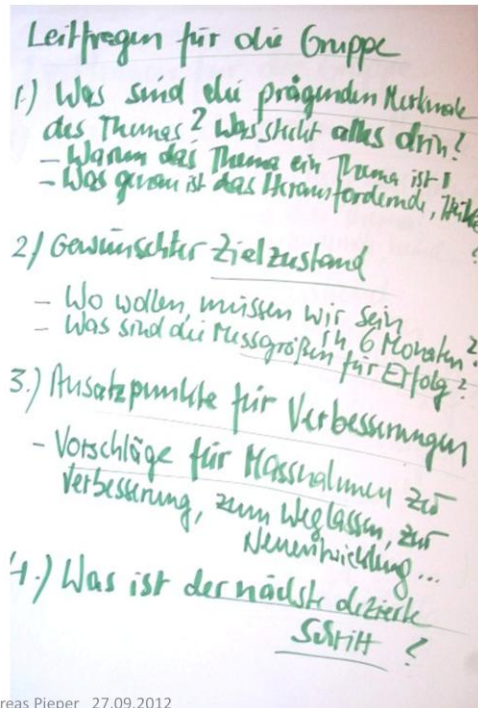 Leitfragen für die Gruppe
1.) Was sind die prägenden Merkmale
des Themas? Was steckt alles drin?
- Warum das Thema ein Thema ist!
- Was genau ist das Herausfordernde,
?
2) Gewünschter Zielzustand
- Wo wollen, müssen wir sein
in 6 Monaten?
- Was sind die Messgrößen für Erfolg?
3.) Ansatzpunkte für Verbesserungen
- Vorschläge für Massnahmen zur
Verbesserung, zum Weglassen, zur
Neuentwicklung...
4.) Was ist der nächste dezidierte
Schritt?
reas Pieper 27.09.2012